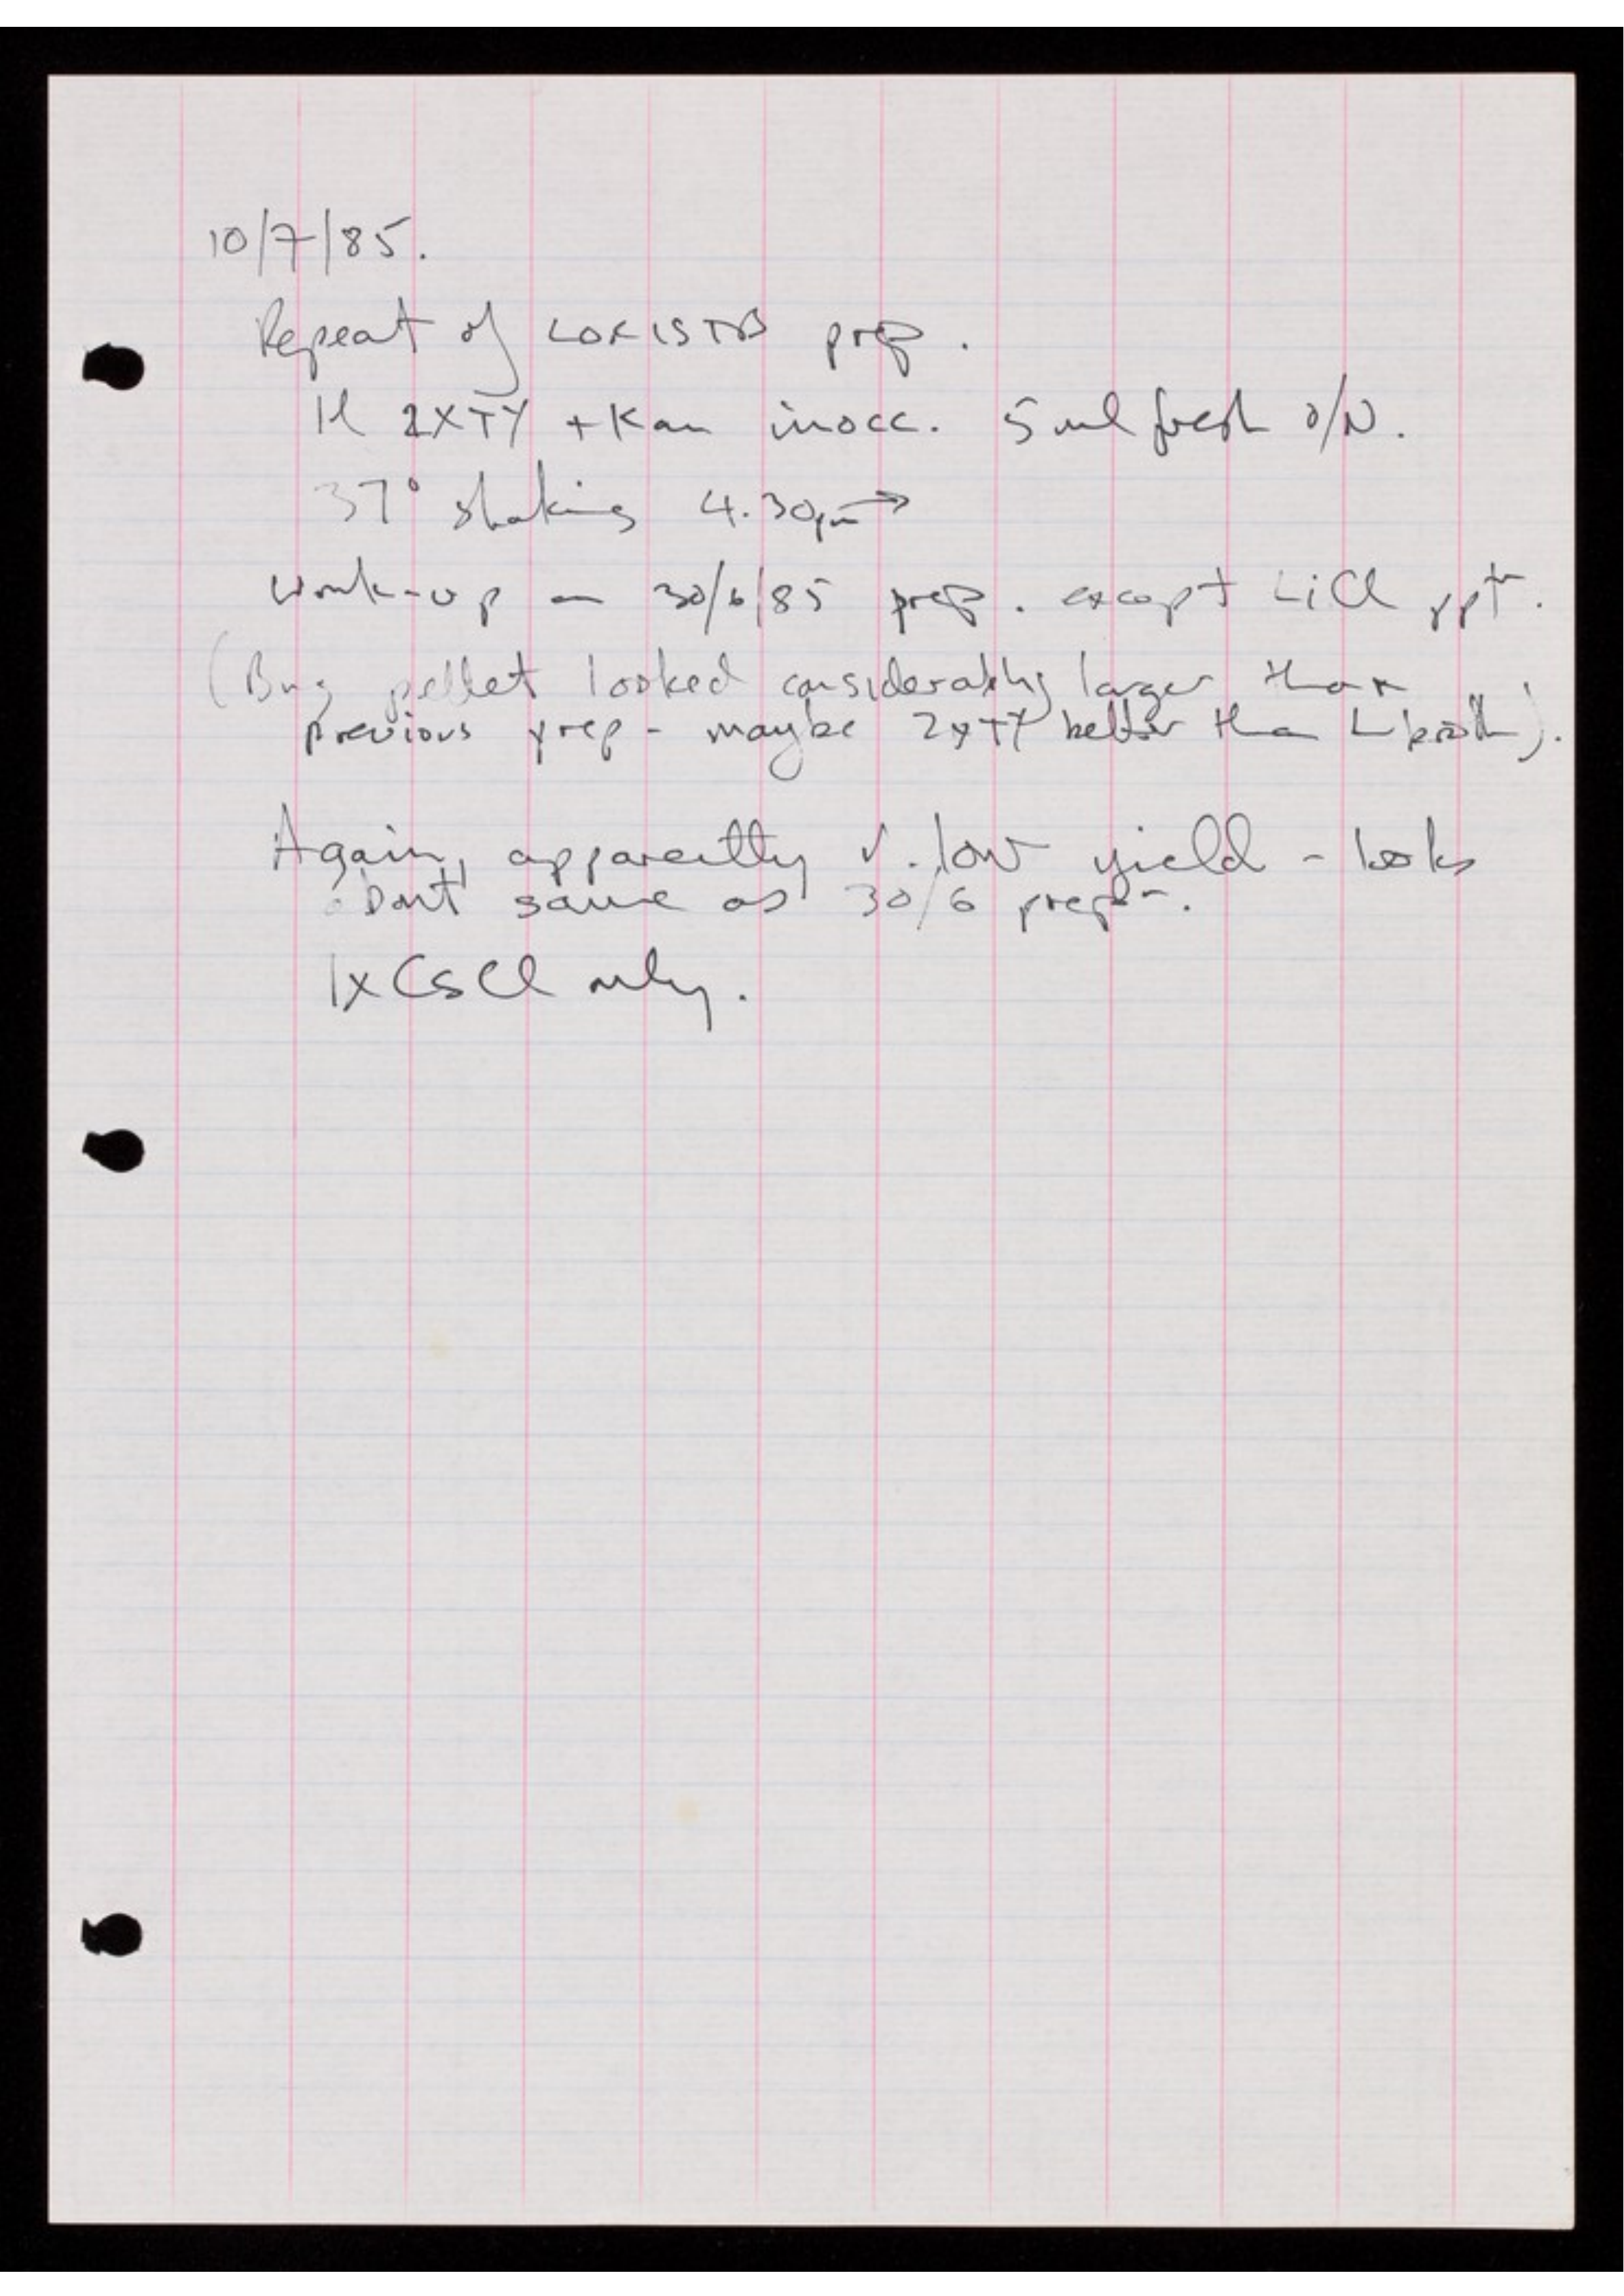 10/7/85.
Repeat of LORIST B prep.
1l 2XTY + Kan inocc. 5ml fresh o/N.
37° shaking 4.30pm →
Work-up as 30/6/85 prep. except LiCl pptn.
(Bug pellet looked considerably larger than
previous prep - maybe 2xTY better than L-broth).
Again, apparently v. low yield - looks
about same as 30/6 prepn.
1x CsCl only.